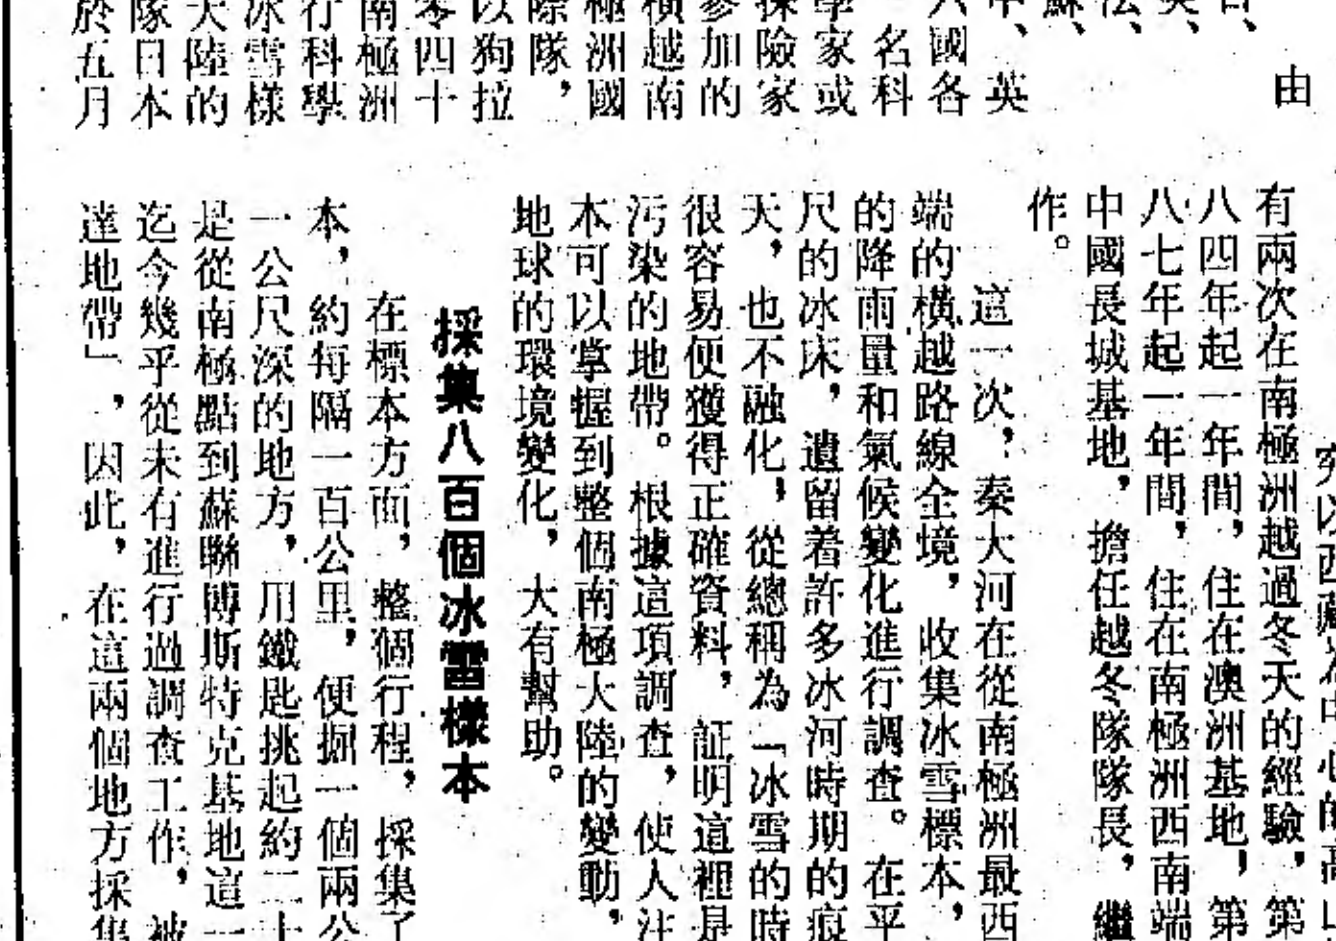 由
日、
美、
法、
蘇、
中、英
六國各
名科
學家或
探險家
參加的
橫越南
極洲國
際隊，
以狗拉
零四十
南極洲
行科學
冰雪樣
大陸的
隊日本
於五月
有兩次在南極洲越過冬天的經驗，第
八四年起一年間，住在澳洲基地，第
八七年起一年間，住在南極洲西南端
中國長城基地，擔任越冬隊隊長，繼
作。
這一次，秦大河在從南極洲最西
端的橫越路線全境，收集冰雪標本，
的降雨量和氣候變化進行調查。在平
尺的冰床，遺留着許多冰河時期的痕
天，也不融化，從總稱為「冰雪的時
很容易便獲得正確資料，証明這裡是
污染的地帶。根據這項調查，使人注
本可以掌握到整個南極大陸的變動，
地球的環境變化，大有幫助。
採集八百個冰雪樣本
在標本方面，整個行程，採集了
本，約每隔一百公里，便掘一個兩公
一公尺深的地方，用鐵匙挑起約二十
是從南極點到蘇聯博斯特克基地這一
迄今幾乎從未有進行過調查工作，被
達地帶」，因此，在這兩個地方採集